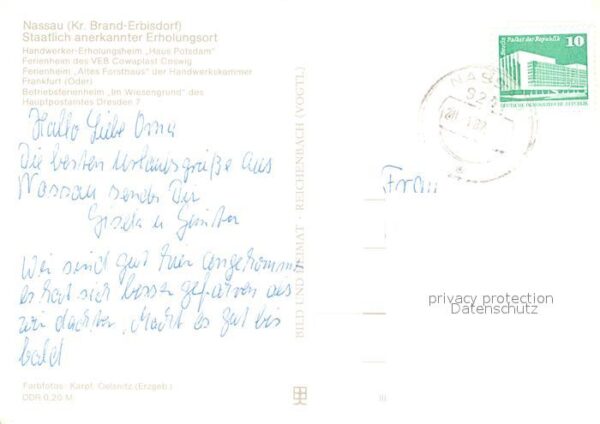 Nassau (Kr. Brand-Erbisdorf)
Staatlich anerkannter Erholungsort
Handwerker-Erholungsheim „Haus Potsdam"
Ferienheim des VEB Cowaplast Coswig
Ferienheim „Altes Forsthaus" der Handwerkskammer
Frankfurt (Oder)
Betriebsferienheim „Im Wiesengrund" des
Hauptpostamtes Dresden 7
Hallo liebe Oma
Die besten Urlaubsgrüße aus
Nassau sendet Dir
Gisela u Günter
Wir sind gut hier angekommen
es hat sich besser gefahren als
wir dachten, Macht es gut bis
bald
Farbfotos: Karef, Oelsnitz (Erzgeb.)
DDR 0,20 M
BILD UND HEIMAT · REICHENBACH (VOGTL)
Berlin Palast der Republik
10
DEUTSCHE DEMOKRATISCHE REPUBLIK
NASS
Frau
privacy protection
Datenschutz